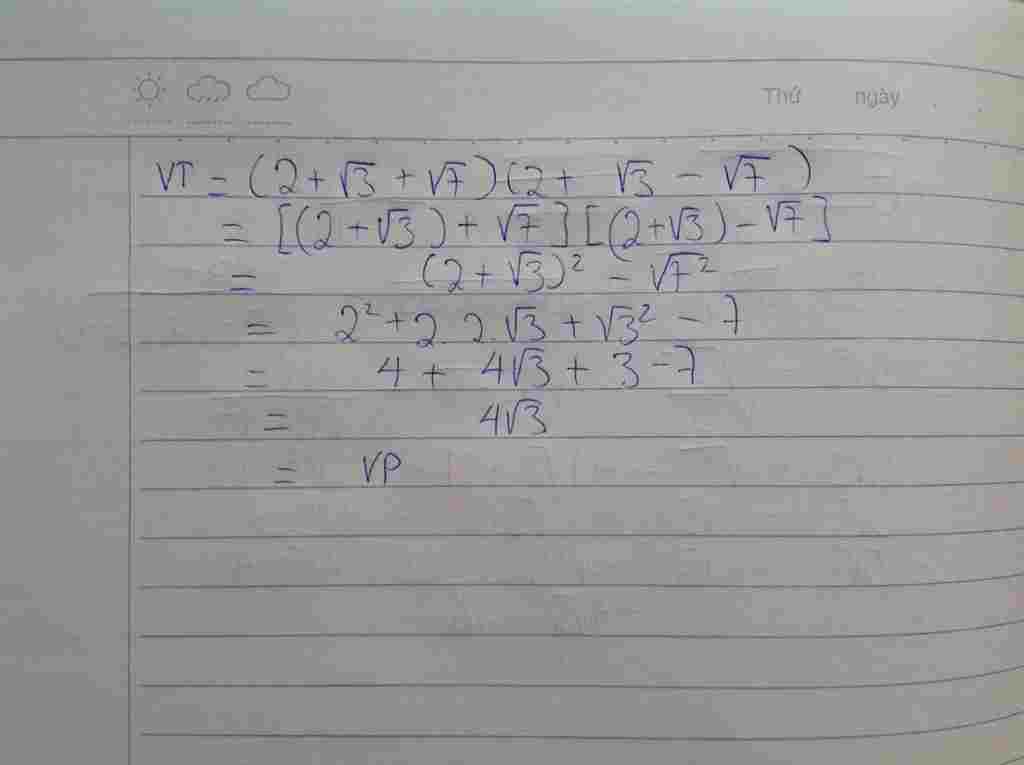 Thứ ngày
VT = (2 + √3 + √7)(2 + √3 − √7)
= [(2 + √3) + √7][(2 + √3) − √7]
= (2 + √3)² − √7²
= 2² + 2.2.√3 + √3² − 7
= 4 + 4√3 + 3 − 7
= 4√3
= VP